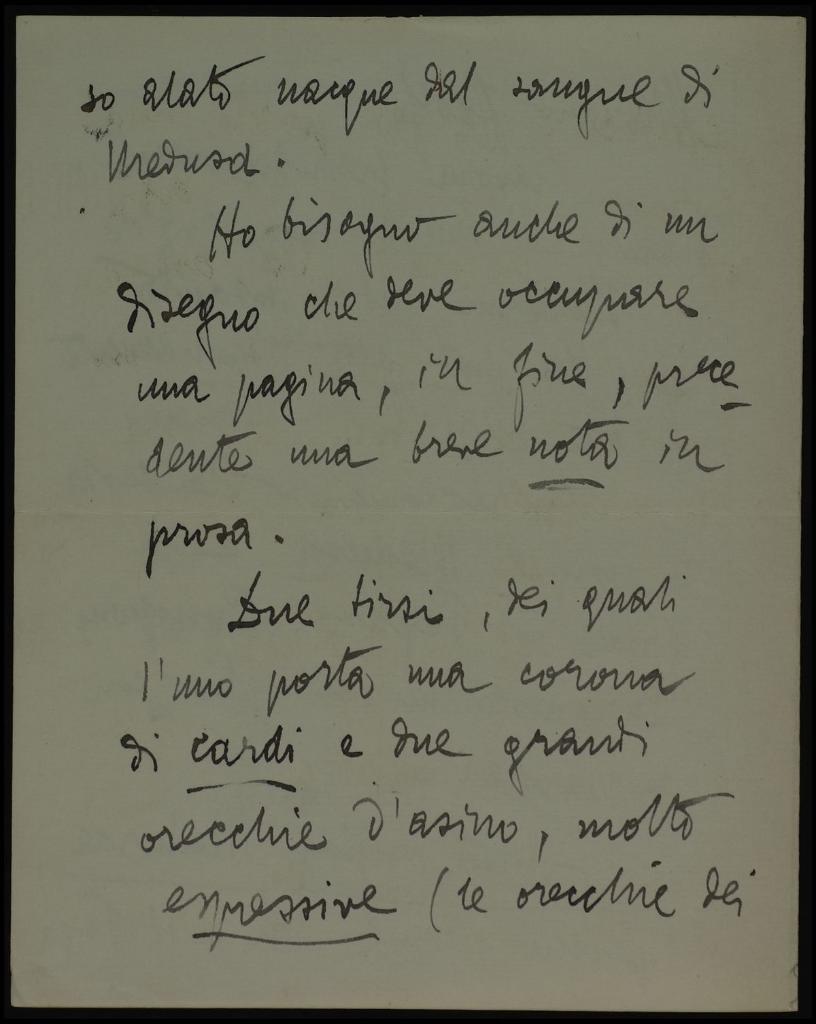 so alato nacque dal sangue di
Medusa.
Ho bisogno anche di un
disegno che deve occupare
una pagina, in fine, prece
dente una breve nota in
prosa.
Due tirsi, dei quali
l'uno porta una corona
di cardi e due grandi
orecchie d'asino, molto
espressive (le orecchie dei